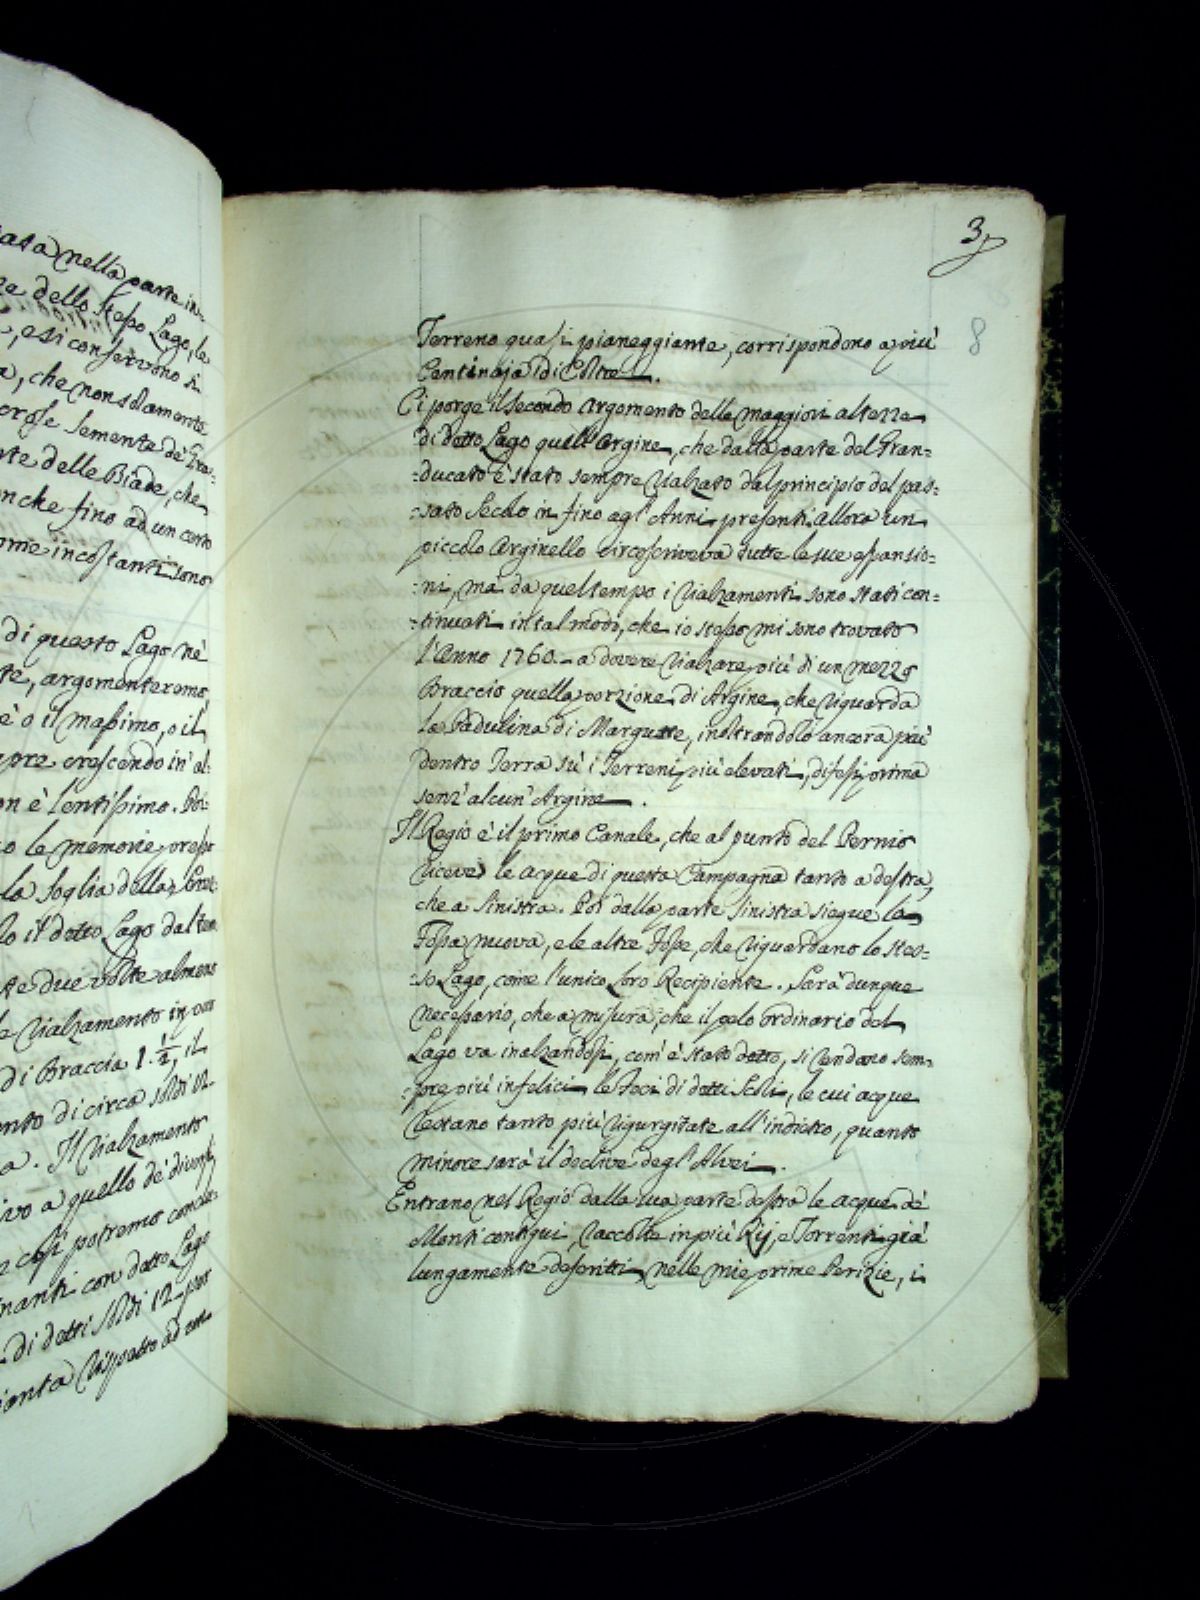 ata nella parte in-
dello stesso Lago, le
, e si conservono
, che non solamente
semente de' Gra-
delle Biade, che
anche fino ad un certo
ome incostanti sono
di questo Lago nè
, argomenteremo,
è o il massimo, o il
pre crescendo in al-
on è lentissimo.
le memorie presso
la Soglia della
lo il detto Lago dal
due volte almeno
rialzamento in
di Braccia 1.½, il
ento di circa soldi 12
a. Il rialzamento
ivo a quello de' diversi
così potremo conclu-
nanti con detto Lago
di detti soldi 12 per
rispetto ad un
3
8
Terreno quasi pianeggiante, corrispondono a più
Centinaja di Coltre.
Ci porge il secondo Argomento delle maggiori altezze
di detto Lago quell'Argine, che dalla parte del Gran=
=ducato è stato sempre rialzato dal principio del pas=
=sato Secolo in fino agl'Anni presenti. allora un
piccolo Arginello circoscriveva tutte le sue espansio=
=ni, mà da quel tempo i rialzamenti sono stati con=
=tinuati in tal modo, che io stesso mi sono trovato
l'Anno 1760. a dovere rialzare più di un mezzo
Braccio quella porzione di Argine, che riguarda
la Padulina di Margutte, inoltrandolo ancora più
dentro Terra sù i Terreni più elevati, difesi prima
senz'alcun'Argine.
Il Regio è il primo Canale, che al punto del Pernio
riceve le acque di questa Campagna tanto a destra,
che a sinistra. Poi dalla parte sinistra siegue la
Fossa nuova, e le altre Fosse, che riguardano lo stes=
=so Lago, come l'unico loro Recipiente. Sarà dunque
necessario, che a misura, che il pelo ordinario del
Lago va inalzandosi, com'è stato detto, si rendano sem=
=pre più infelici le Foci di detti Scoli, le cui acque
restano tanto più rigurgitate all'indietro, quanto
minore sarà il declive degl'Alvei.
Entrano nel Regio dalla sua parte destra le acque dè
Monti contigui, raccolte in più Rij, e Torrenti già
lungamente descritti nelle mie prime Perizie, i